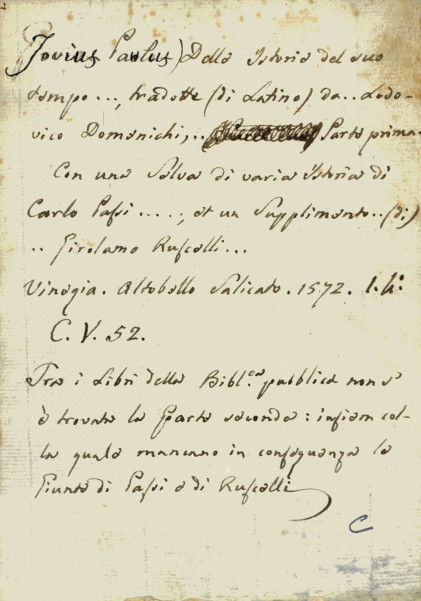 Jovius Paulus) Delle Istorie del suo
tempo ..., tradotte (di Latino) da .. Lodo-
vico Domenichi, .. Parte prima.
Con una Selva di varia Istoria di
Carlo Passi ....., et un Supplimento .. (di)
.. Girolamo Ruscelli ...
Vinegia. Altobello Salicato. 1572.
C. V. 52.
Tra i Libri della Bibl.ca pubblica non s'
è trovata la Parte seconda: insiem col-
la quale mancano in conseguenza le
Giunte di Passi e di Ruscelli
C